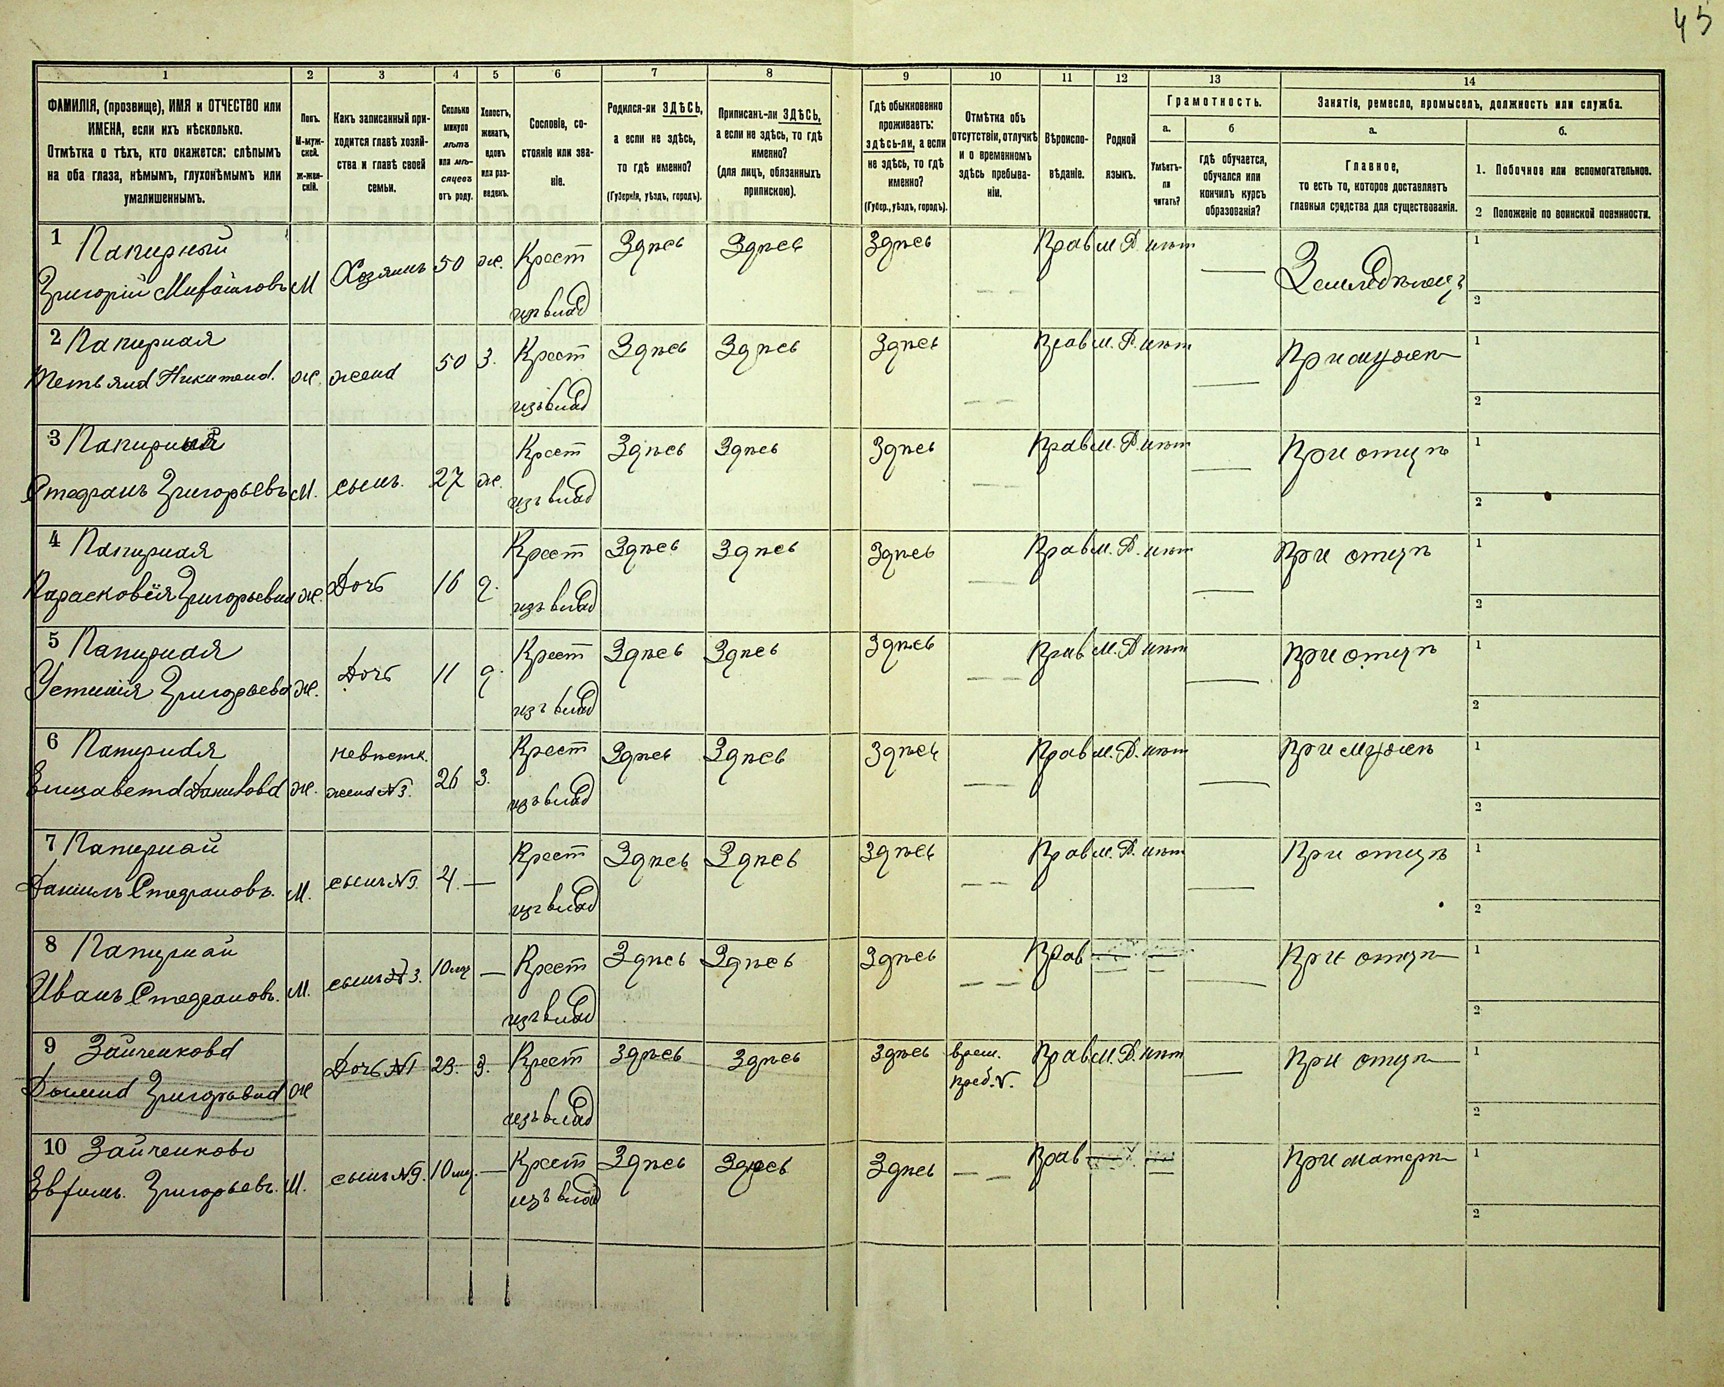 45
1 2 3 4 5 6 7 8 9 10 11 12 13 14
ФАМИЛІЯ, (прозвище), ИМЯ и ОТЧЕСТВО или
ИМЕНА, если ихъ нѣсколько.
Отмѣтка о тѣхъ, кто окажется: слѣпымъ
на оба глаза, нѣмымъ, глухонѣмымъ или
умалишеннымъ.
Полъ.
М-муж-
ской.
ж-жен-
скій.
Какъ записанный при-
ходится главѣ хозяй-
ства и главѣ своей
семьи.
Сколько
минуло
лѣтъ
или мѣ-
сяцевъ
отъ роду.
Холостъ,
женатъ,
вдовъ
или раз-
веденъ.
Сословіе, со-
стояніе или зва-
ніе.
Родился-ли ЗДѢСЬ,
а если не здѣсь,
то гдѣ именно?
(Губернія, уѣздъ, городъ).
Приписанъ-ли ЗДѢСЬ,
а если не здѣсь, то гдѣ
именно?
(для лицъ, обязанныхъ
припискою).
Гдѣ обыкновенно
проживаетъ:
здѣсь-ли, а если
не здѣсь, то гдѣ
именно?
(Губер., уѣздъ, городъ).
Отмѣтка объ
отсутствіи, отлучкѣ
и о временномъ
здѣсь пребыва-
ніи.
Вѣроиспо-
вѣданіе.
Родной
языкъ.
Грамотность.
а.
Умѣетъ-
ли
читать?
б
гдѣ обучается,
обучался или
кончилъ курсъ
образованія?
Занятія, ремесло, промыселъ, должность или служба.
а.
Главное,
то есть то, которое доставляетъ
главныя средства для существованія.
б.
1. Побочное или вспомогательное.
2 Положеніе по воинской повинности.
1 Папирный Крест Здѣсь Здѣсь Здѣсь Прав м.Р. нѣт 1
Григорій Михайловъ М Хозяинъ 50 ж. изъ влад Земледѣлецъ 2
2 Папирная Крест Здѣсь Здѣсь Здѣсь Прав м.Р. нѣт При мужѣ 1
Тетьяна Никитена. ж. жена 50 З. изъ влад 2
3 Папирный Крест Здѣсь Здѣсь Здѣсь Прав м.Р. нѣт При отцѣ 1
Стефанъ Григорьевъ М. сынъ. 27 ж. изъ влад 2
4 Папирная Крест Здѣсь Здѣсь Здѣсь Прав м.Р. нѣт При отцѣ 1
Парасковія Григорьевна ж. Дочь 16 д. изъ влад 2
5 Папирная Крест Здѣсь Здѣсь Здѣсь Прав м.Р. нѣт При отцѣ 1
Устинія Григорьева ж. Дочь 11 д. изъ влад 2
6 Папирная невѣстк. Крест Здѣсь Здѣсь Здѣсь Прав м.Р. нѣт При мужѣ 1
Елизавета Данилова ж. жена №3. 26 З. изъ влад 2
7 Папирнай Крест Здѣсь Здѣсь Здѣсь Прав м.Р. нѣт При отцѣ 1
Даніилъ Стефановъ. М. сынъ №3. 4. — изъ влад 2
8 Папирнай Крест Здѣсь Здѣсь Здѣсь Прав При отцѣ 1
Иванъ Стефановъ. М. сынъ №3. 10 мц — изъ влад 2
9 Зайченкова Дочь №1 23. З. Крест Здѣсь Здѣсь Здѣсь врем. Прав м.Р. нѣт При отцѣ 1
Домна Григорьвна ж изъ влад преб. 2
10 Зайченково Крест Здѣсь Здѣсь Здѣсь Прав При матери 1
Евфимъ. Григорьевъ. М. сынъ №9. 10 мц. — изъ влад 2